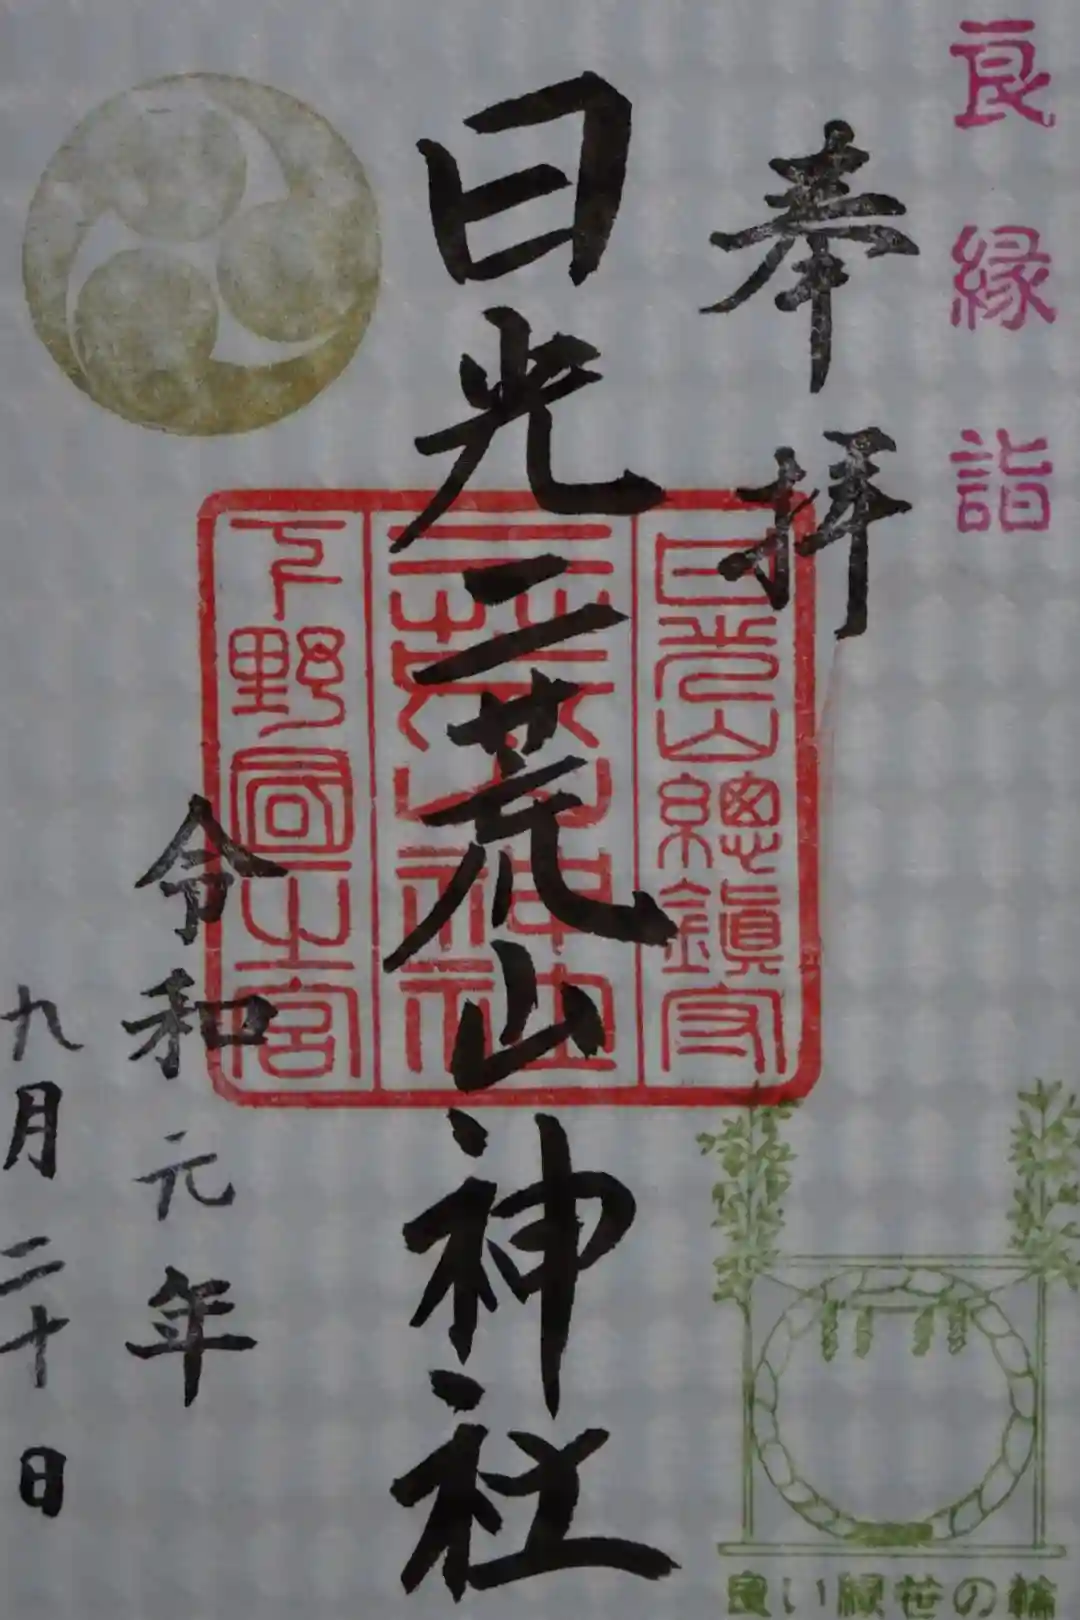 良縁詣
奉拝
日光二荒山神社
日光山總鎮守
二荒山神社
下野國一之宮
令和元年
九月二十日
良い縁笹の輪